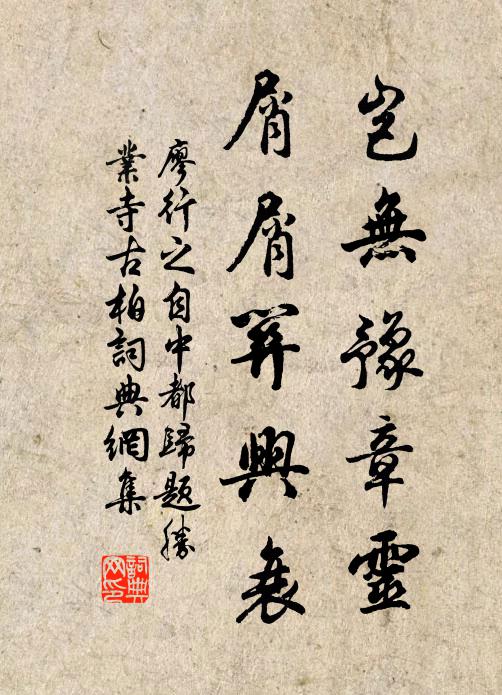 豈無豫章靈
屑屑筭興衰
廖行之自中都歸題勝
業寺古柏詞典網集
詞典网印